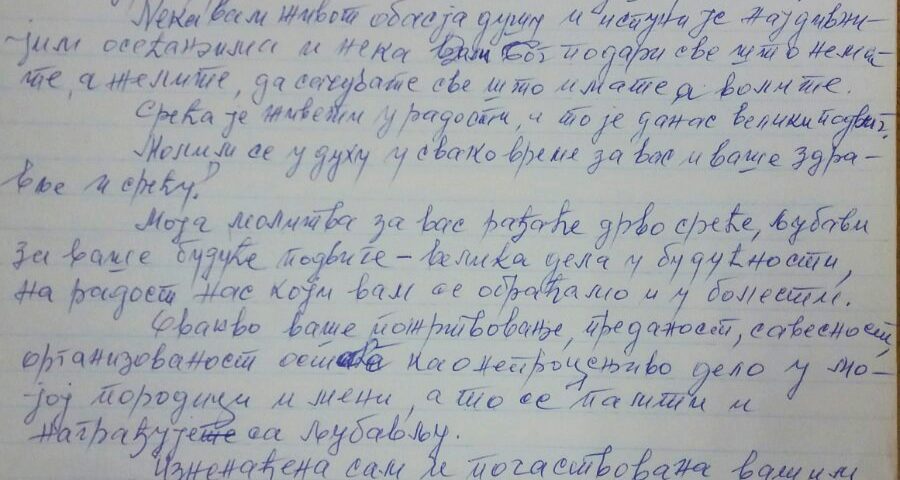 Нека вам живот обасја душу и испуни је најдивни-
-јим осећањима и нека вам Бог подари све што нема-
те, а желите, да сачувате све што имате а волите.
Срећа је живети у радости, и то је данас велики подвиг.
Молим се у духу у свако време за вас и ваше здра-
вље и срећу.
Моја молитва за вас рађаће дрво среће, љубави
за ваше будуће подвиге - велика дела у будућности,
на радост нас који вам се обраћамо и у болести.
Овакво ваше пожртвовање, преданост, савесност,
организованост остаће као непроцењиво дело у мо-
-јој породици и мени, а то се памти и
награђује са љубављу.
Изненађена сам и почаствована вашим